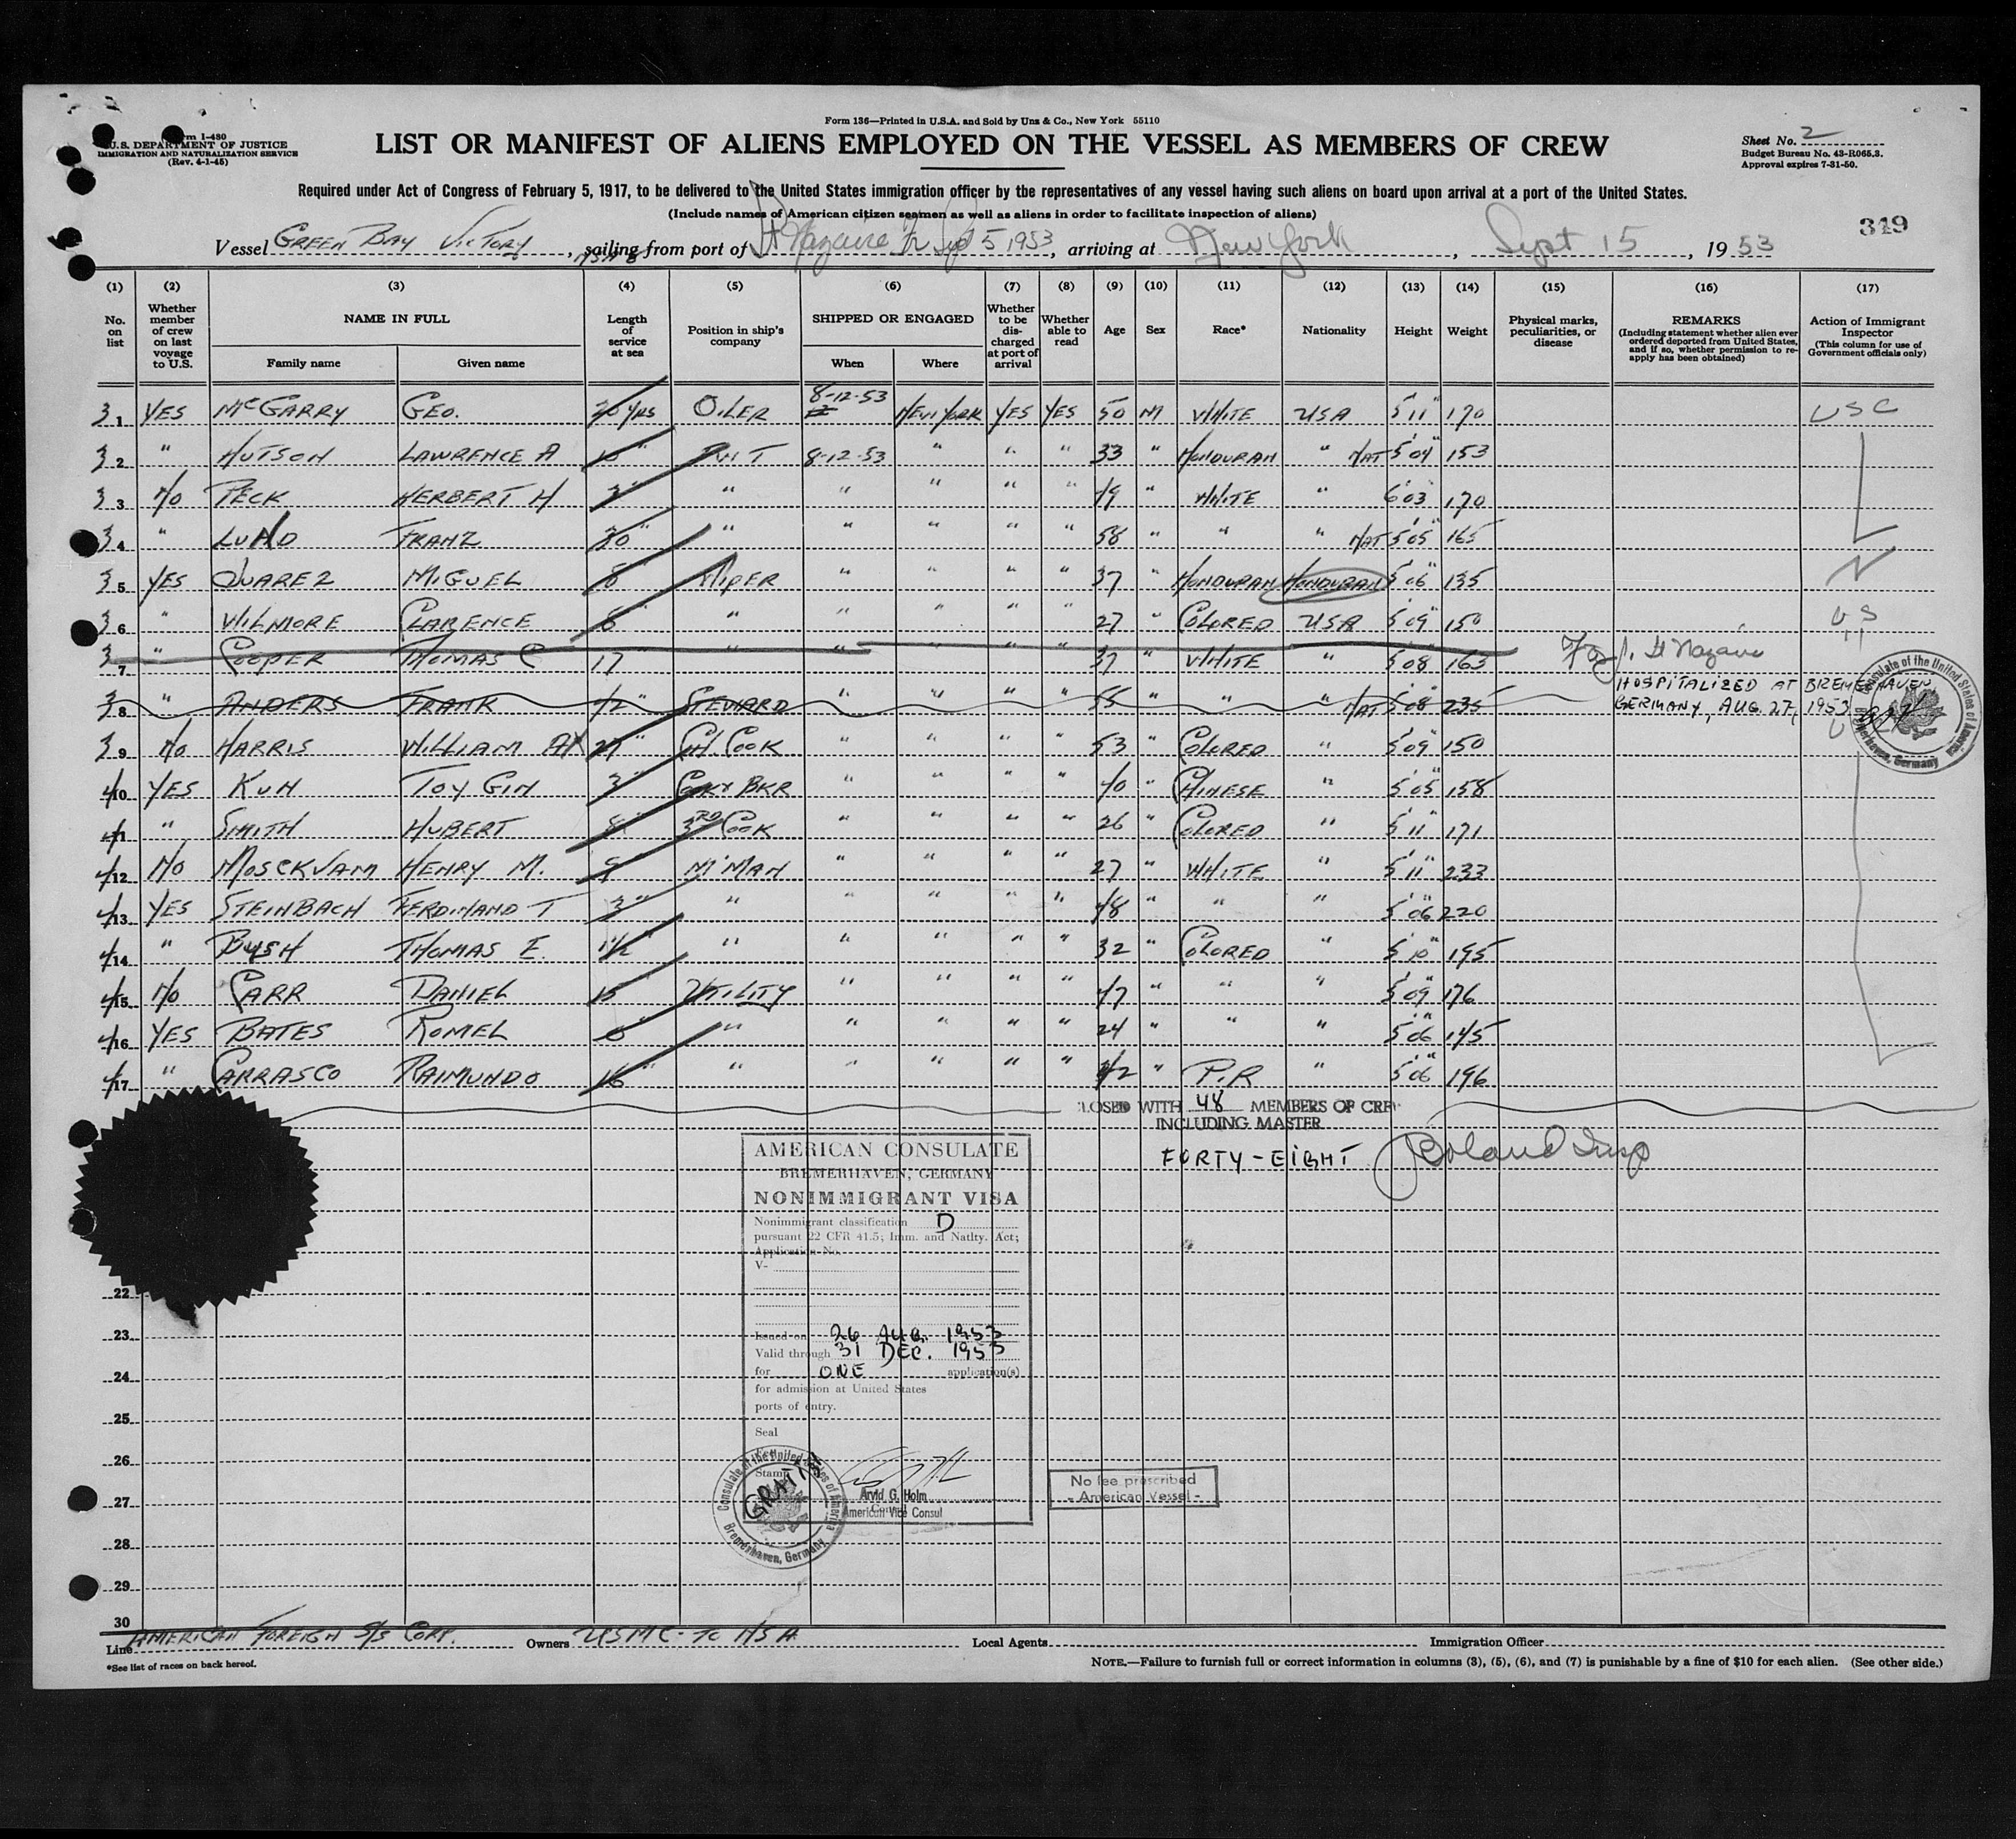 Form 136—Printed in U.S.A. and Sold by Unz & Co., New York 55110
Form I-480
U.S. DEPARTMENT OF JUSTICE
IMMIGRATION AND NATURALIZATION SERVICE
(Rev. 4-1-45)
LIST OR MANIFEST OF ALIENS EMPLOYED ON THE VESSEL AS MEMBERS OF CREW
Sheet No. 2
Budget Bureau No. 43-R065.3.
Approval expires 7-31-50.
Required under Act of Congress of February 5, 1917, to be delivered to the United States immigration officer by the representatives of any vessel having such aliens on board upon arrival at a port of the United States.
(Include names of American citizen seamen as well as aliens in order to facilitate inspection of aliens)
349
Vessel GREEN BAY VICTORY, sailing from port of St Nazaire Fr Sept 5 1953, arriving at New York, Sept 15, 1953
(1) (2) (3) (4) (5) (6) (7) (8) (9) (10) (11) (12) (13) (14) (15) (16) (17)
No. on list
Whether member of crew on last voyage to U.S.
NAME IN FULL
Family name
Given name
Length of service at sea
Position in ship's company
SHIPPED OR ENGAGED
When
Where
Whether to be discharged at port of arrival
Whether able to read
Age
Sex
Race*
Nationality
Height
Weight
Physical marks, peculiarities, or disease
REMARKS
(Including statement whether alien ever ordered deported from United States, and if so, whether permission to reapply has been obtained)
Action of Immigrant Inspector
(This column for use of Government officials only)
31 YES McGARRY GEO. 20 YRS OILER 8-12-53 NEW YORK YES YES 50 M WHITE USA 5'11" 170 USC
32 " HUTSON LAWRENCE A " 8-12-53 " " " 33 " HONDURAN " NAT 5'04" 153
33 NO PECK HERBERT H " " " " " " 49 " WHITE " 6'03" 170
34 " LUND FRANZ 30 " " " " " " 58 " " " NAT 5'05" 165
35 YES SUAREZ MIGUEL 8 " WIPER " " " " 37 " HONDURAN HONDURAN 5'06" 135
36 " WILMORE CLARENCE 8 " " " " " " 27 " COLORED USA 5'09" 150 US
37 " COOPER THOMAS C 17 " " " " " 37 " WHITE " 5'08" 163 St Nazaire
38 " ANDERS FRANK 12 " STEWARD " " " " 55 " " " NAT 5'08" 235 HOSPITALIZED AT BREMERHAVEN
GERMANY, AUG. 27, 1953
39 NO HARRIS WILLIAM A 27 " CH. COOK " " " " 53 " COLORED " 5'09" 150
40 YES KUN TOY GIN 3 " CK & BKR " " " " 40 " CHINESE " 5'05" 158
41 " SMITH HUBERT 8 " 3RD COOK " " " " 26 " COLORED " 5'11" 171
42 NO MOSCKVAM HENRY M. 9 " M'MAN " " " " 27 " WHITE " 5'11" 233
43 YES STEINBACH FERDINAND T 3 " " " " " " 48 " " " 5'06" 220
44 " BUSH THOMAS E. 1½ " " " " " " 32 " COLORED " 5'10" 195
45 NO CARR DANIEL 15 " UTILITY " " " " 47 " " " 5'09" 176
46 YES BATES ROMEL " " " " " " 24 " " " 5'06" 145
47 " CARRASCO RAIMUNDO 16 " " " " " " 42 " P.R " 5'06" 196
Consulate of the United States of America
Bremerhaven, Germany
CLOSED WITH 48 MEMBERS OF CREW
INCLUDING MASTER
FORTY-EIGHT Boland Insp
AMERICAN CONSULATE
BREMERHAVEN, GERMANY
NONIMMIGRANT VISA
Nonimmigrant classification D
pursuant 22 CFR 41.5; Imm. and Natlty. Act;
Application No.
V-
Issued on 26 AUG. 1953
Valid through 31 DEC. 1953
for ONE application(s)
for admission at United States
ports of entry.
Seal
Fee
Stamp
GRATIS
Consulate of the United States of America
Bremerhaven, Germany
Arvid G. Holm
Consul
American Vice Consul
No fee prescribed
- American Vessel -
22
23
24
25
26
27
28
29
30
Line AMERICAN FOREIGN S/S CORP. Owners USMC - TO NSA Local Agents Immigration Officer
*See list of races on back hereof.
NOTE.—Failure to furnish full or correct information in columns (3), (5), (6), and (7) is punishable by a fine of $10 for each alien. (See other side.)